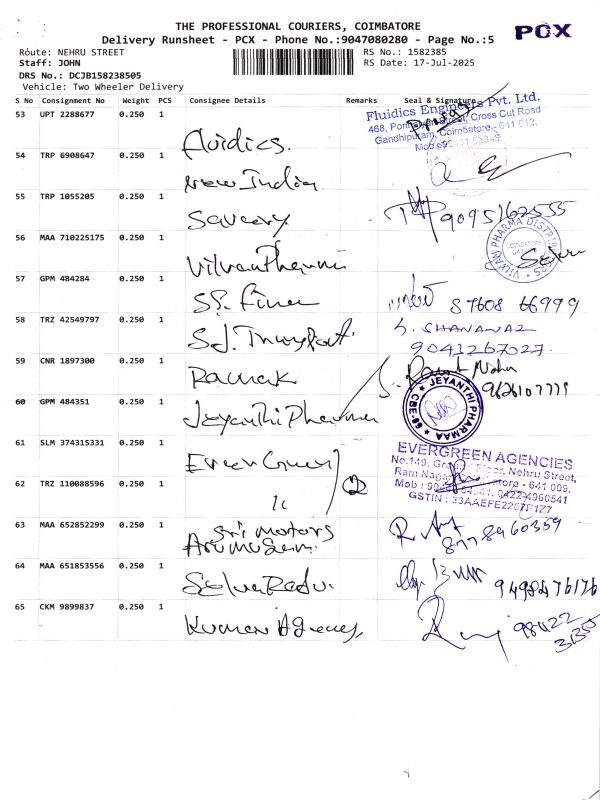 THE PROFESSIONAL COURIERS, COIMBATORE
Delivery Runsheet - PCX - Phone No.:9047080280 - Page No.:5
PCX
Route: NEHRU STREET
RS No.: 1582385
Staff: JOHN
RS Date: 17-Jul-2025
DRS No.: DCJB158238505
Vehicle: Two Wheeler Delivery
S No Consignment No Weight PCS Consignee Details Remarks Seal & Signature
53 UPT 2288677 0.250 1 Fluidics.
Fluidics Engineers Pvt. Ltd.
Cross Cut Road
Gandhipuram, Coimbatore - 641 012.
54 TRP 6908647 0.250 1 New India
55 TRP 1055205 0.250 1 9095162555
56 MAA 710225175 0.250 1 Vilvam Pharma
VILVAM PHARMA DISTRIBUTORS
COIMBATORE
57 GPM 484284 0.250 1 87608 66999
58 TRZ 42549797 0.250 1 S.J. Transport
S. SHANAWAZ
9041267027
59 CNR 1897300 0.250 1 Ramak
60 GPM 484351 0.250 1 Jeyanthi Pharma
JEYANTHI PHARMAA
CBE-
61 SLM 374315331 0.250 1 Evergreen
EVERGREEN AGENCIES
Nehru Street,
Ram Nagar, - 641 009.
0422-4960541
62 TRZ 110088596 0.250 1
63 MAA 652852299 0.250 1 Sri Motors
8778960359
64 MAA 651853556 0.250 1 9498476176
65 CKM 9899837 0.250 1 Kumaran Agencies
98422